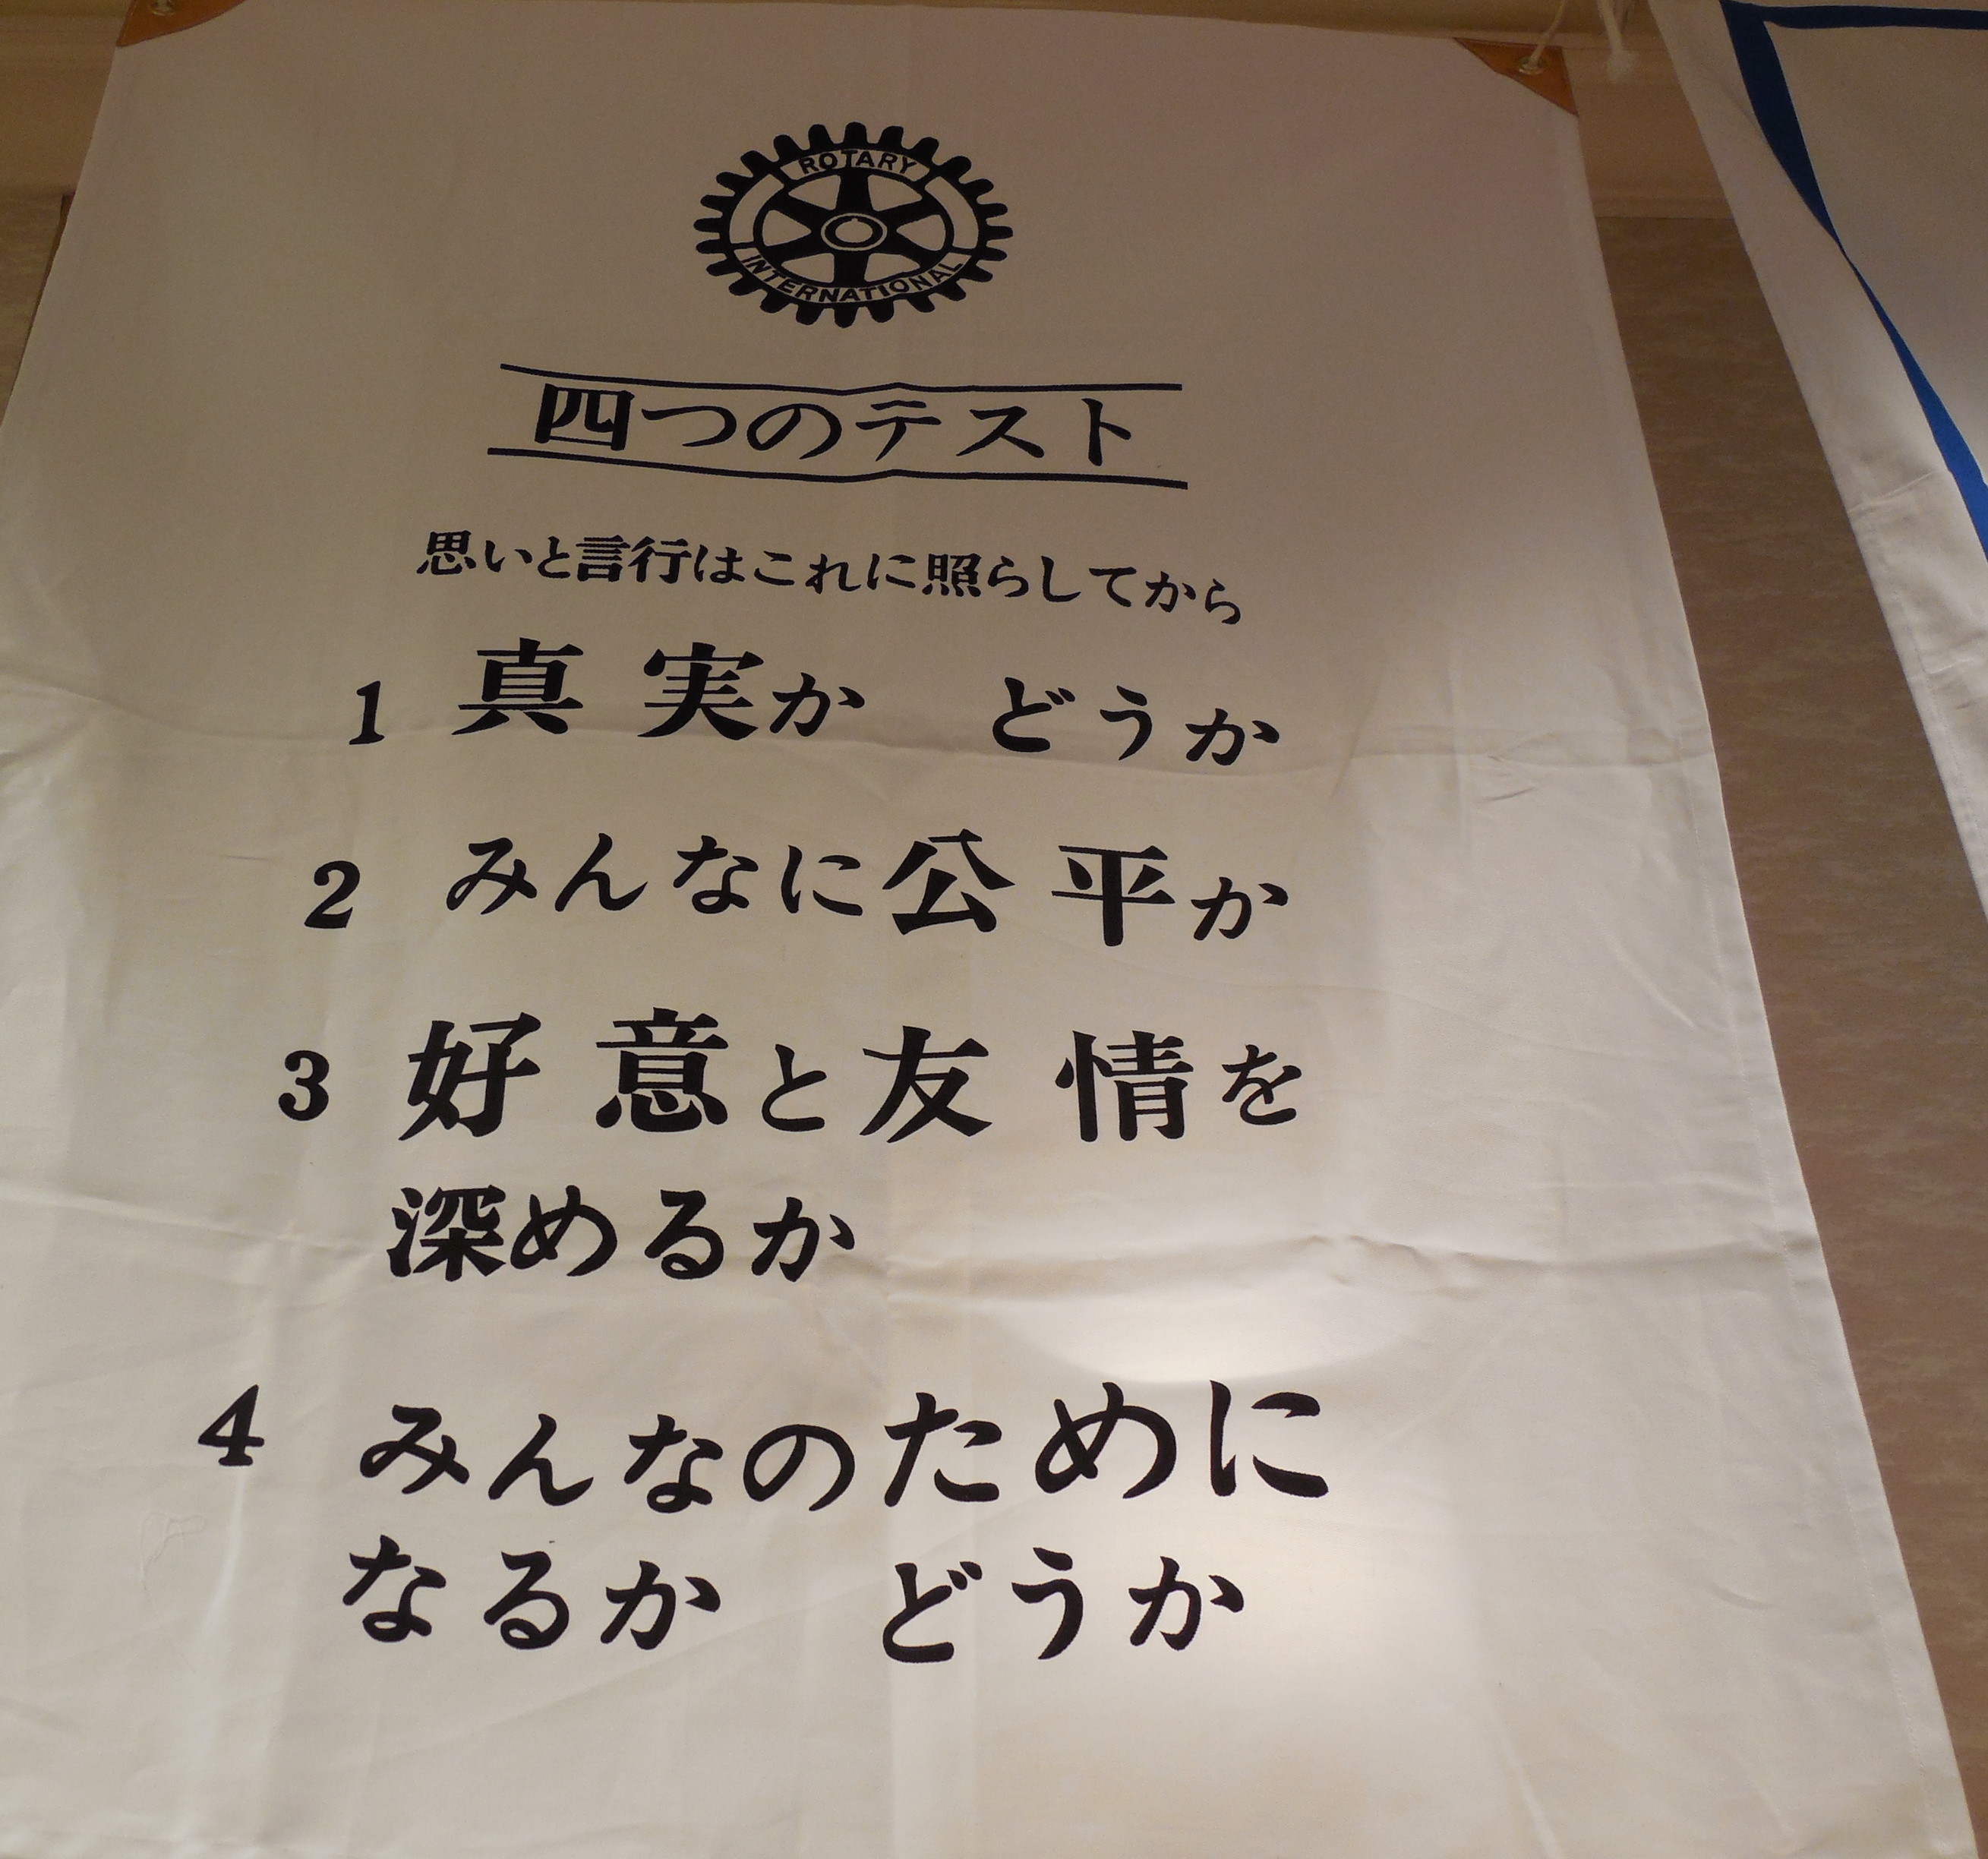 ROTARY
INTERNATIONAL
四つのテスト
思いと言行はこれに照らしてから
1 真実か どうか
2 みんなに公平か
3 好意と友情を
深めるか
4 みんなのために
なるか どうか